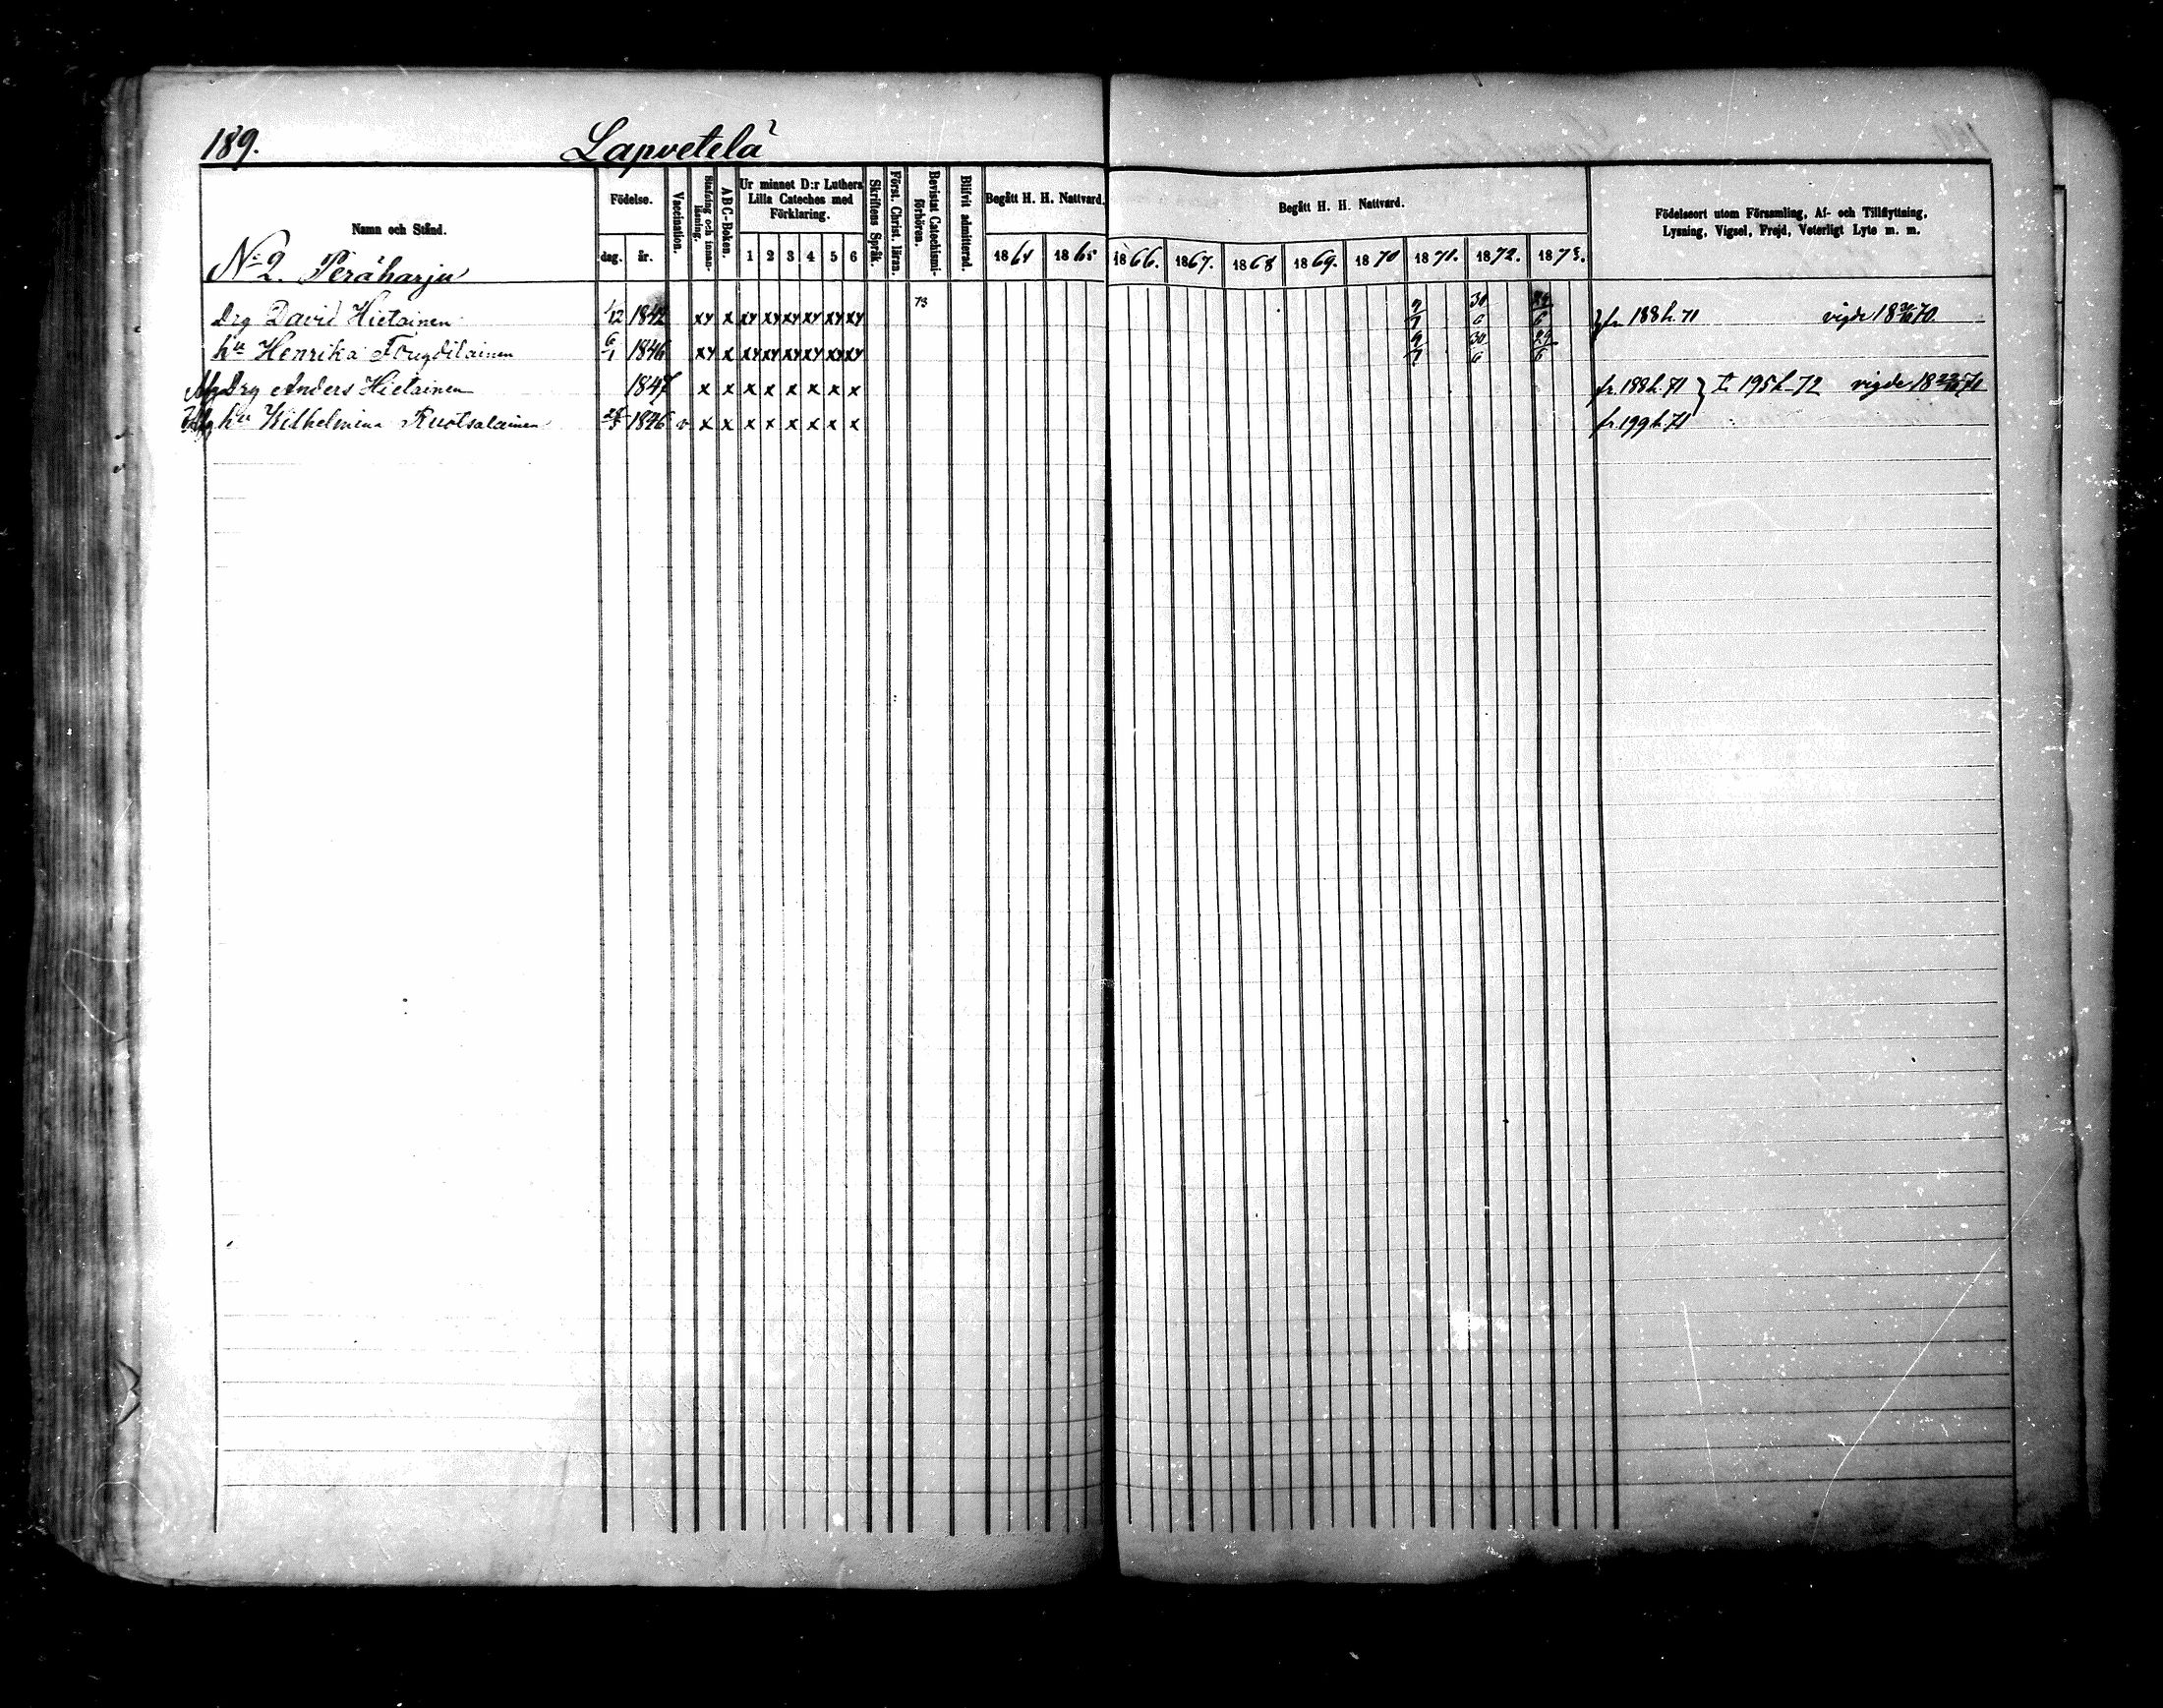 189. Lapvetelä
Namn och Stånd. Födelse. dag. år. Vaccination. Stafning och innanläsning. ABC-Boken. Ur minnet D:r Luthers Lilla Cateches med Förklaring. 1 2 3 4 5 6 Skriftens Språk. Först. Christ. läran. Bevistat Catechismiförhören. Blifvit admitterad. Begått H. H. Nattvard. 1864 1865 Begått H. H. Nattvard. 1866. 1867. 1868 1869. 1870 1871. 1872. 1873. Födelseort utom Församling, Af- och Tillflyttning, Lysning, Vigsel, Frejd, Veterligt Lyte m. m.
No 2. Peräharju
Drg David Hietainen 1/12 1842 xy x xy xy xy xy xy xy 73 9/7 30/6 29/6 fr. 188 h. 71 vigde 18 70.
hu Henrika 6/1 1846 xy x xy xy xy xy xy xy 9/7 30/6 29/6
Drg Anders Hietainen 1847 x x x x x x x x fr. 188 h. 71 t. 195 h. 72 vigde 18 71
hu Wilhelmina Ruotsalainen 1846 v x x x x x x x x fr. 199 h. 71